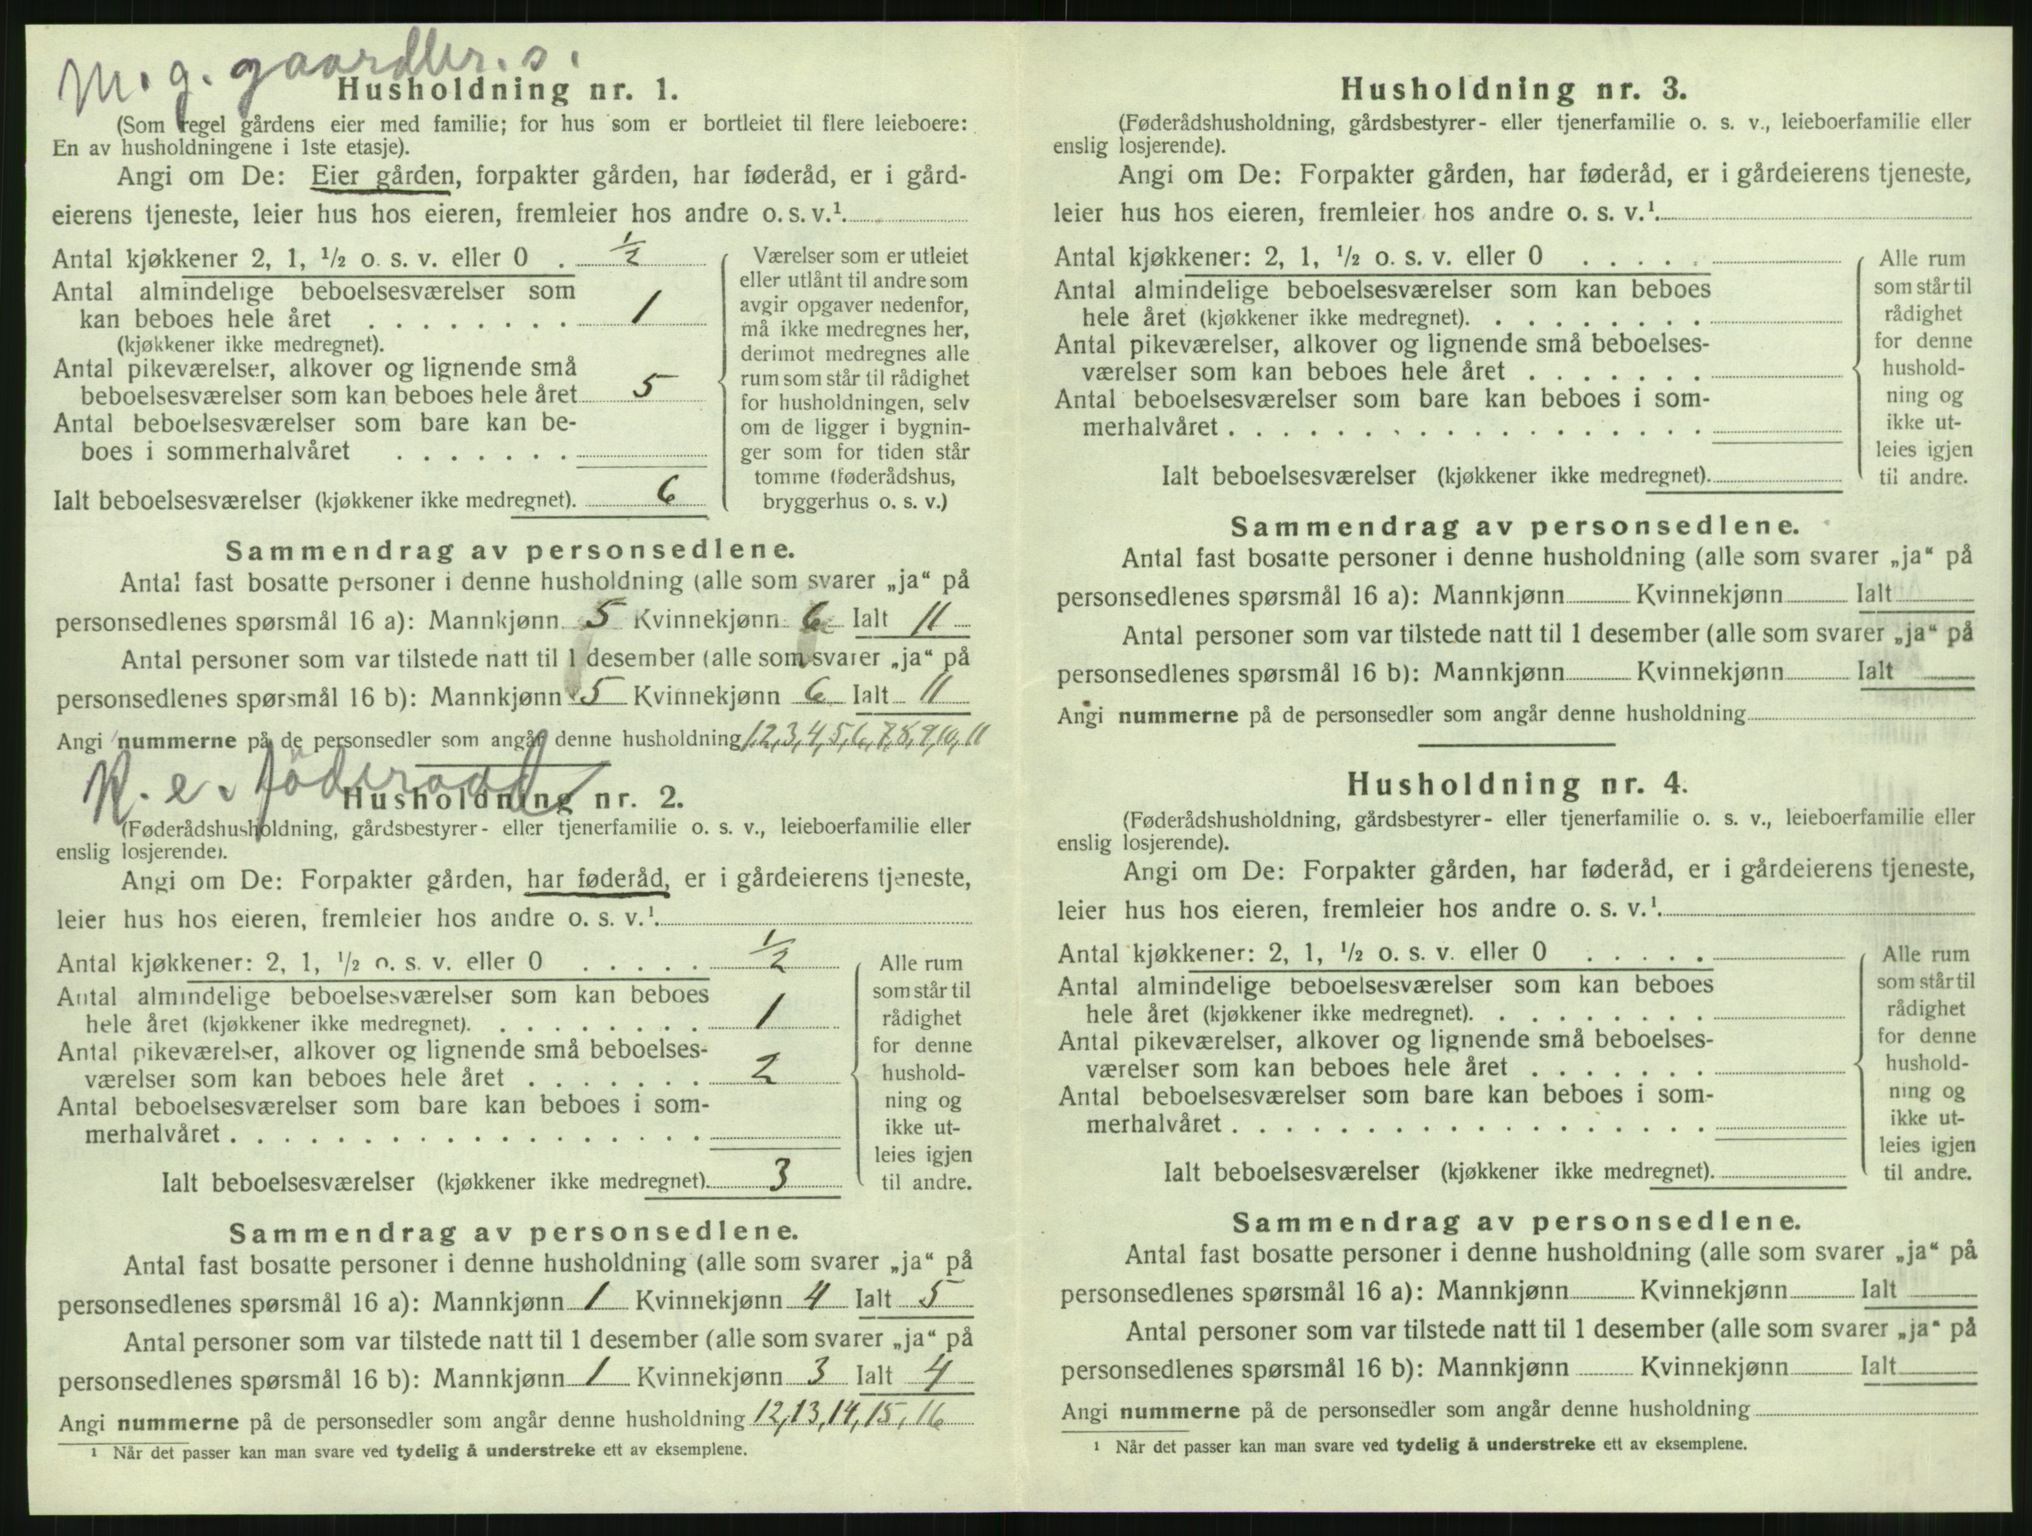 M. g. gaardbr. s.
Husholdning nr. 1.
(Som regel gårdens eier med familie; for hus som er bortleiet til flere leieboere:
En av husholdningene i 1ste etasje).
Angi om De: Eier gården, forpakter gården, har føderåd, er i gård-
eierens tjeneste, leier hus hos eieren, fremleier hos andre o. s. v.¹
Antal kjøkkener 2, 1, ½ o. s. v. eller 0 . ½
Antal almindelige beboelsesværelser som
kan beboes hele året . . . . . . . . 1
(kjøkkener ikke medregnet).
Antal pikeværelser, alkover og lignende små
beboelsesværelser som kan beboes hele året 5
Antal beboelsesværelser som bare kan be-
boes i sommerhalvåret . . . . . . .
Ialt beboelsesværelser (kjøkkener ikke medregnet). 6
Værelser som er utleiet
eller utlånt til andre som
avgir opgaver nedenfor,
må ikke medregnes her,
derimot medregnes alle
rum som står til rådighet
for husholdningen, selv
om de ligger i bygnin-
ger som for tiden står
tomme (føderådshus,
bryggerhus o. s. v.)
Sammendrag av personsedlene.
Antal fast bosatte personer i denne husholdning (alle som svarer „ja“ på
personsedlenes spørsmål 16 a): Mannkjønn 5 Kvinnekjønn 6 Ialt 11
Antal personer som var tilstede natt til 1 desember (alle som svarer „ja“ på
personsedlenes spørsmål 16 b): Mannkjønn 5 Kvinnekjønn 6 Ialt 11
Angi nummerne på de personsedler som angår denne husholdning 1,2,3,4,5,6,7,8,9,10,11
K. e. föderaad
Husholdning nr. 2.
(Føderådshusholdning, gårdsbestyrer- eller tjenerfamilie o. s. v., leieboerfamilie eller
enslig losjerende).
Angi om De: Forpakter gården, har føderåd, er i gårdeierens tjeneste,
leier hus hos eieren, fremleier hos andre o. s. v.¹
Antal kjøkkener: 2, 1, ½ o. s. v. eller 0 . . . . . ½
Antal almindelige beboelsesværelser som kan beboes
hele året (kjøkkener ikke medregnet). . . . . . . . . 1
Antal pikeværelser, alkover og lignende små beboelses-
værelser som kan beboes hele året . . . . . . . 2
Antal beboelsesværelser som bare kan beboes i som-
merhalvåret . . . . . . . . . . . . . . . . . .
Ialt beboelsesværelser (kjøkkener ikke medregnet). 3
Alle rum
som står til
rådighet
for denne
hushold-
ning og
ikke ut-
leies igjen
til andre.
Sammendrag av personsedlene.
Antal fast bosatte personer i denne husholdning (alle som svarer „ja“ på
personsedlenes spørsmål 16 a): Mannkjønn 1 Kvinnekjønn 4 Ialt 5
Antal personer som var tilstede natt til 1 desember (alle som svarer „ja“ på
personsedlenes spørsmål 16 b): Mannkjønn 1 Kvinnekjønn 3 Ialt 4
Angi nummerne på de personsedler som angår denne husholdning 12,13,14,15,16
¹ Når det passer kan man svare ved tydelig å understreke ett av eksemplene.
Husholdning nr. 3.
(Føderådshusholdning, gårdsbestyrer- eller tjenerfamilie o. s. v., leieboerfamilie eller
enslig losjerende).
Angi om De: Forpakter gården, har føderåd, er i gårdeierens tjeneste,
leier hus hos eieren, fremleier hos andre o. s. v.¹
Antal kjøkkener: 2, 1, ½ o. s. v. eller 0 . . . . .
Antal almindelige beboelsesværelser som kan beboes
hele året (kjøkkener ikke medregnet). . . . . . . . .
Antal pikeværelser, alkover og lignende små beboelses-
værelser som kan beboes hele året . . . . . . .
Antal beboelsesværelser som bare kan beboes i som-
merhalvåret . . . . . . . . . . . . . . . . . .
Ialt beboelsesværelser (kjøkkener ikke medregnet).
Alle rum
som står til
rådighet
for denne
hushold-
ning og
ikke ut-
leies igjen
til andre.
Sammendrag av personsedlene.
Antal fast bosatte personer i denne husholdning (alle som svarer „ja“ på
personsedlenes spørsmål 16 a): Mannkjønn Kvinnekjønn Ialt
Antal personer som var tilstede natt til 1 desember (alle som svarer „ja“ på
personsedlenes spørsmål 16 b): Mannkjønn Kvinnekjønn Ialt
Angi nummerne på de personsedler som angår denne husholdning
Husholdning nr. 4.
(Føderådshusholdning, gårdsbestyrer- eller tjenerfamilie o. s. v., leieboerfamilie eller
enslig losjerende).
Angi om De: Forpakter gården, har føderåd, er i gårdeierens tjeneste,
leier hus hos eieren, fremleier hos andre o. s. v.¹
Antal kjøkkener: 2, 1, ½ o. s. v. eller 0 . . . . .
Antal almindelige beboelsesværelser som kan beboes
hele året (kjøkkener ikke medregnet). . . . . . . . .
Antal pikeværelser, alkover og lignende små beboelses-
værelser som kan beboes hele året . . . . . . .
Antal beboelsesværelser som bare kan beboes i som-
merhalvåret . . . . . . . . . . . . . . . . . .
Ialt beboelsesværelser (kjøkkener ikke medregnet).
Alle rum
som står til
rådighet
for denne
hushold-
ning og
ikke ut-
leies igjen
til andre.
Sammendrag av personsedlene.
Antal fast bosatte personer i denne husholdning (alle som svarer „ja“ på
personsedlenes spørsmål 16 a): Mannkjønn Kvinnekjønn Ialt
Antal personer som var tilstede natt til 1 desember (alle som svarer „ja“ på
personsedlenes spørsmål 16 b): Mannkjønn Kvinnekjønn Ialt
Angi nummerne på de personsedler som angår denne husholdning
¹ Når det passer kan man svare ved tydelig å understreke ett av eksemplene.